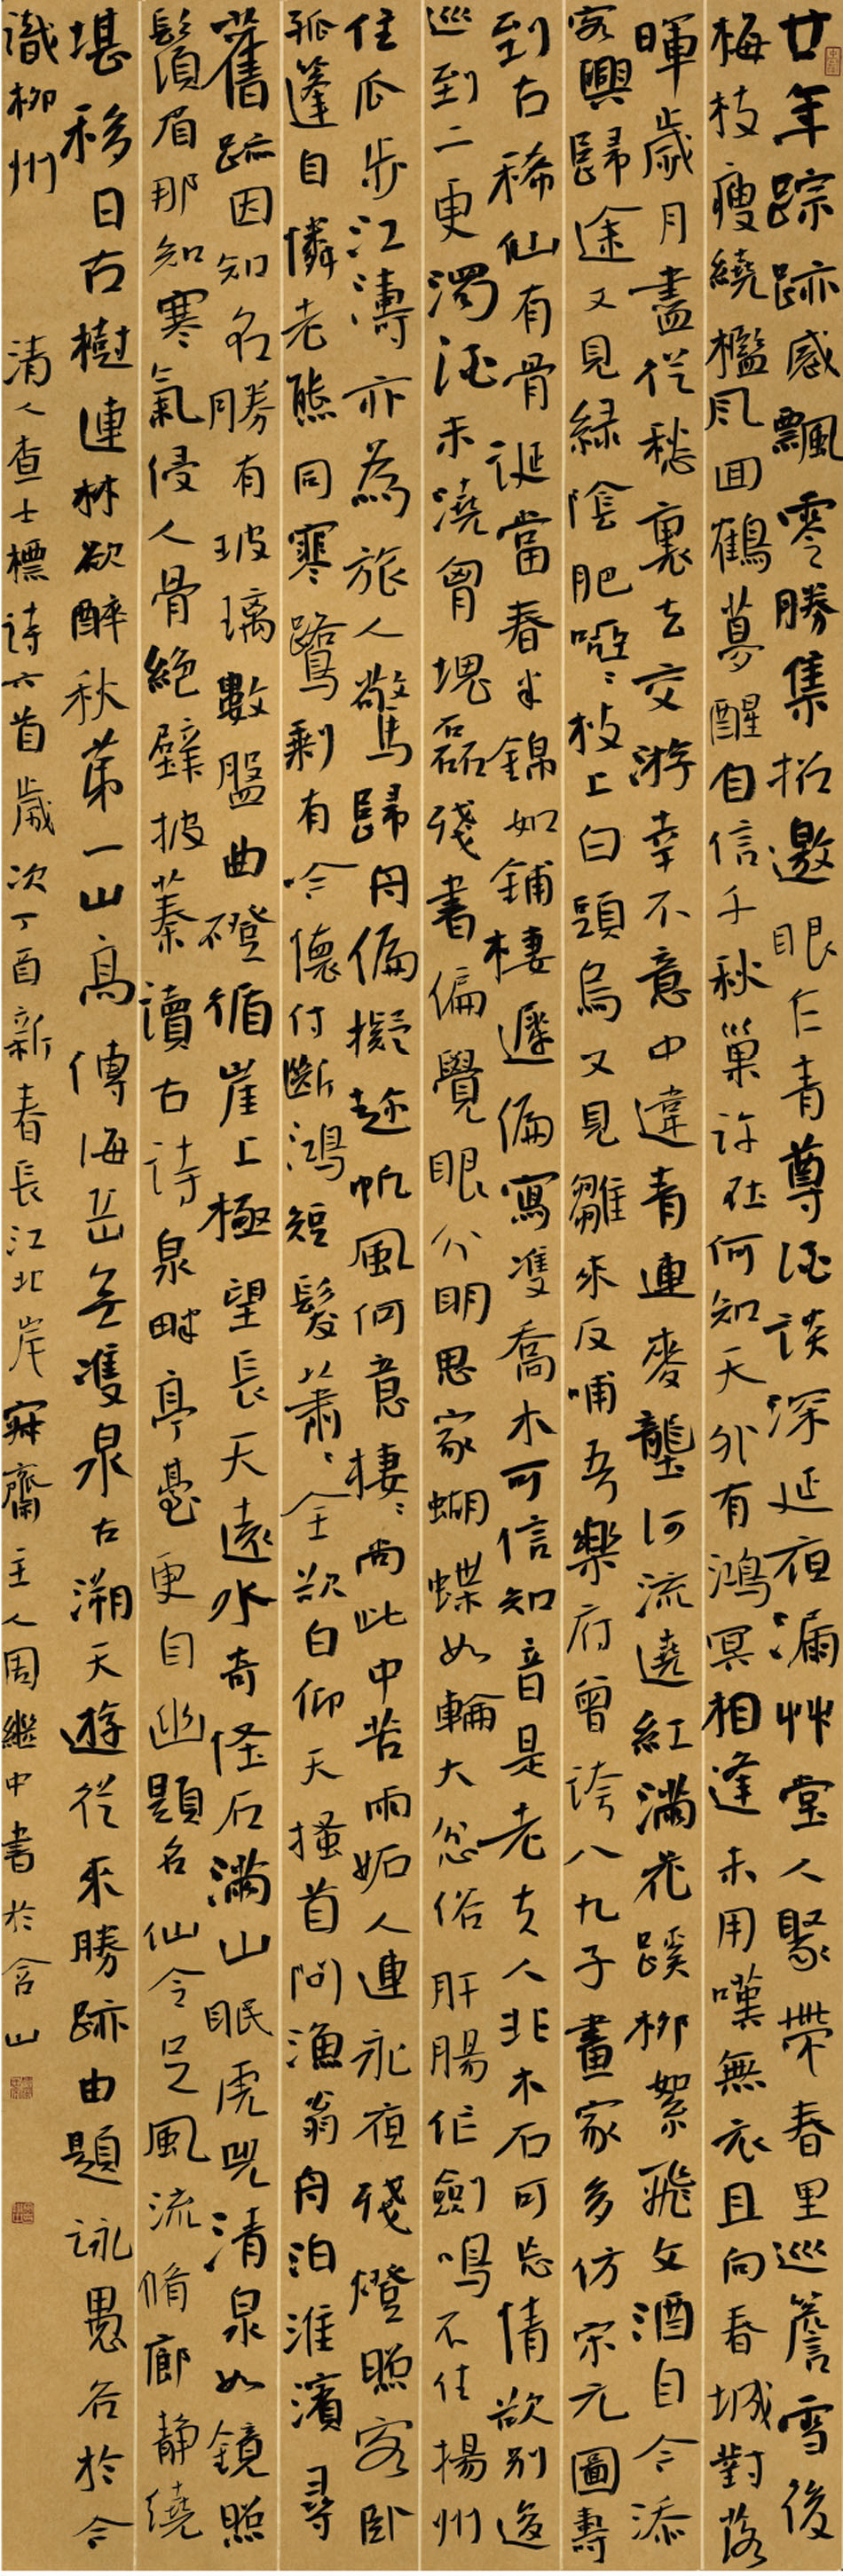 廿年踪跡感飄零勝集招邀眼乍青尊酒談深延夜漏艸堂人聚帶春星巡簷雪後
梅枝瘦繞檻風回鶴夢醒自信千秋巢許在何知天外有鴻冥相逢未用嘆無衣且向春城對落
暉歲月盡從愁裏去交游幸不意中違青連麥壟河流遶紅滿花蹊柳絮飛文酒自今添
客興歸途又見緑陰肥啞啞枝上白頭烏又見雛來反哺吾樂府曾誇八九子畫家多仿宋元圖壽
到古稀仙有骨誕當春半錦如鋪棲遲偏寫雙喬木可信知音是老夫人非木石可忘情欲别逡
巡到二更濁酒未澆胷塊磊殘書偏覺眼分明思家蝴蝶如輪大忿俗肝腸作劍鳴不住揚州
住瓜步江濤亦為旅人驚歸舟偏擬趂帆風何意棲棲尚此中苦雨妬人連永夜殘燈照客卧
孤篷自憐老熊同寒鷺剩有冷懷付斷鴻短髮蕭蕭全欲白仰天搔首問漁翁舟泊淮濱尋
舊跡因知名勝有玻璃數盤曲磴循崖上極望長天遠水奇怪石滿山眠虎兕清泉如鏡照
鬚眉那知寒氣侵人骨絶壁披蓁讀古詩泉畔亭臺更自幽題名仙令足風流脩廊静繞
堪移日古樹連林欲醉秋第一山高傳海岳無雙泉古溯天遊從來勝跡由題詠愚谷於今
識柳州
清人查士標詩六首歲次丁酉新春長江北岸寐齋主人周繼中書於含山